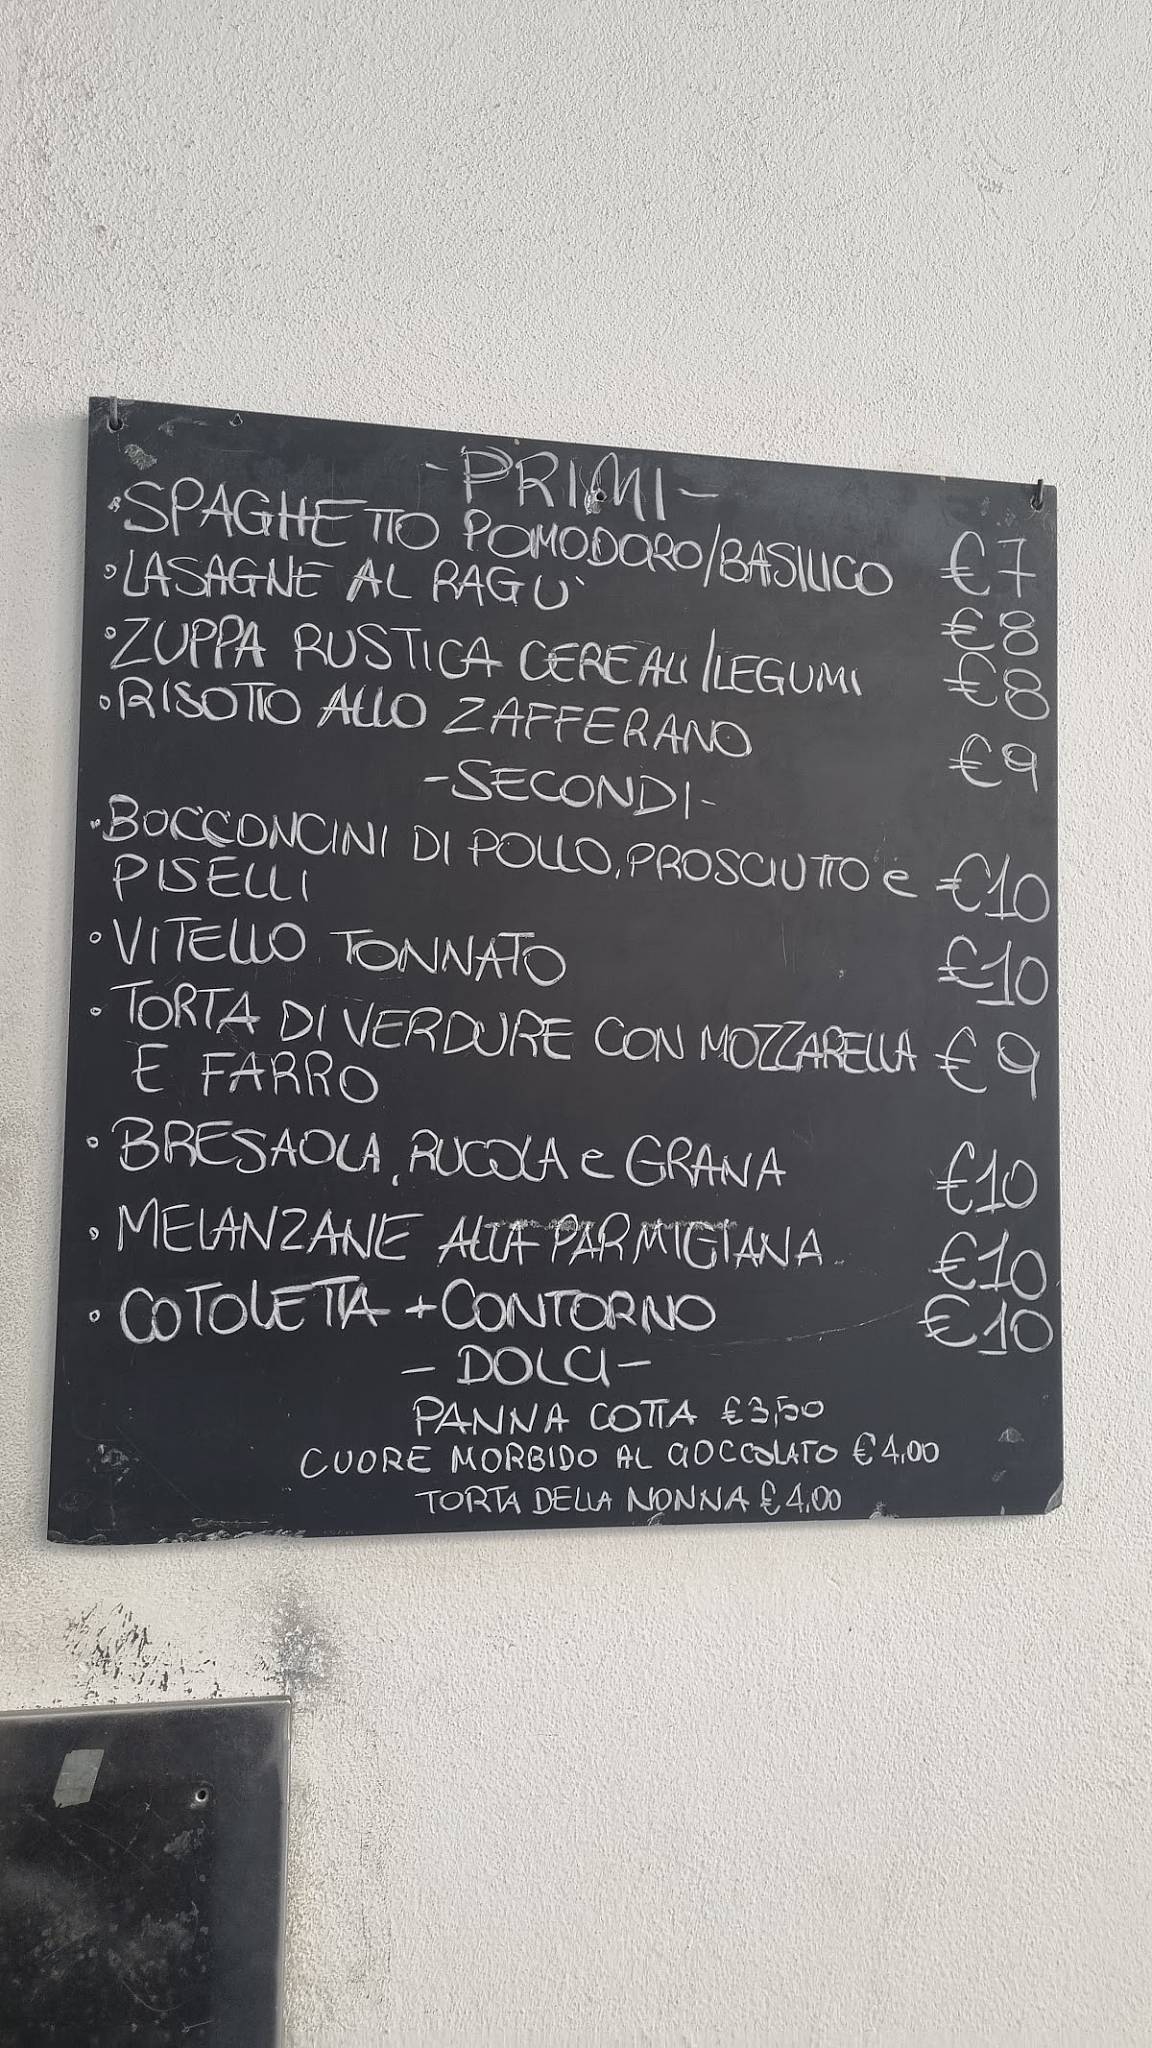 -PRIMI-
•SPAGHETTO POMODORO/BASILICO €7
•LASAGNE AL RAGU' €8
•ZUPPA RUSTICA CEREALI/LEGUMI €8
•RISOTTO ALLO ZAFFERANO €9
-SECONDI-
•BOCCONCINI DI POLLO, PROSCIUTTO e €10
PISELLI
•VITELLO TONNATO €10
•TORTA DI VERDURE CON MOZZARELLA €9
E FARRO
•BRESAOLA, RUCOLA e GRANA €10
•MELANZANE ALLA PARMIGIANA €10
•COTOLETTA + CONTORNO €10
- DOLCI -
PANNA COTTA €3,50
CUORE MORBIDO AL CIOCCOLATO €4,00
TORTA DELLA NONNA €4,00